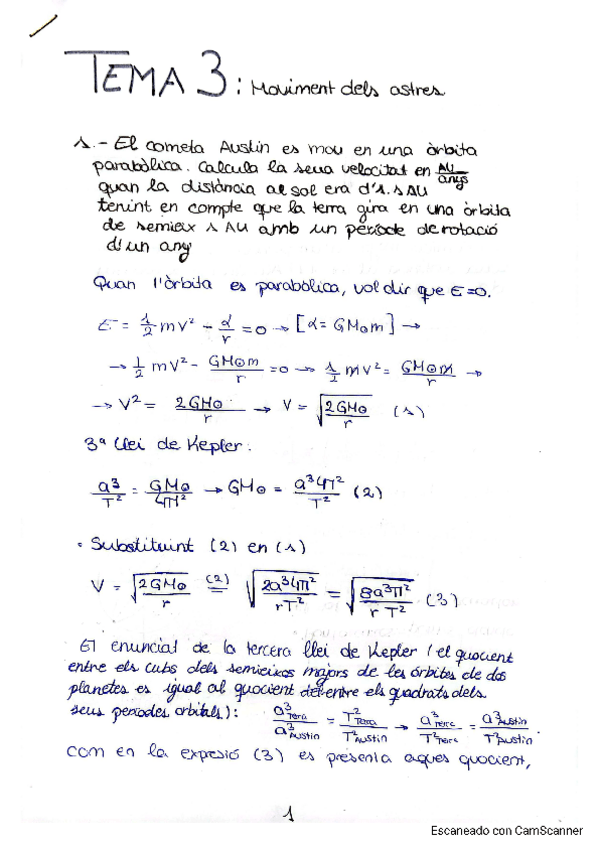 TEMA 3: Moviment dels astres
1.- El cometa Austin es mou en una òrbita
parabòlica. Calcula la seua velocitat en AU/anys
quan la distància al sol era d'1.1 AU
tenint en compte que la terra gira en una òrbita
de semieix 1 AU amb un període de rotació
d'un any
Quan l'òrbita es parabòlica, vol dir que E=0.
E = 1/2 mv² - α/r = 0 → [α = GM⊙m] →
→ 1/2 mv² - GM⊙m/r = 0 → 1/2 mv² = GM⊙m/r →
→ v² = 2GM⊙/r → v = √(2GM⊙/r) (1)
3ª Llei de Kepler:
a³/T² = GM⊙/4π² → GM⊙ = a³4π²/T² (2)
• Substituint (2) en (1)
V = √(2GM⊙/r) (2)= √(2a³4π²/rT²) = √(8a³π²/rT²) (3)
El enunciat de la tercera llei de Kepler (el quocient
entre els cubs dels semieixos majors de les òrbites de dos
planetes es igual al quocient entre els quadrats dels
seus períodes orbitals): a³Terra/a³Austin = T²Terra/T²Austin → a³Terra/T²Terra = a³Austin/T²Austin.
com en la expresió (3) es presenta aques quocient,
1
Escaneado con CamScanner